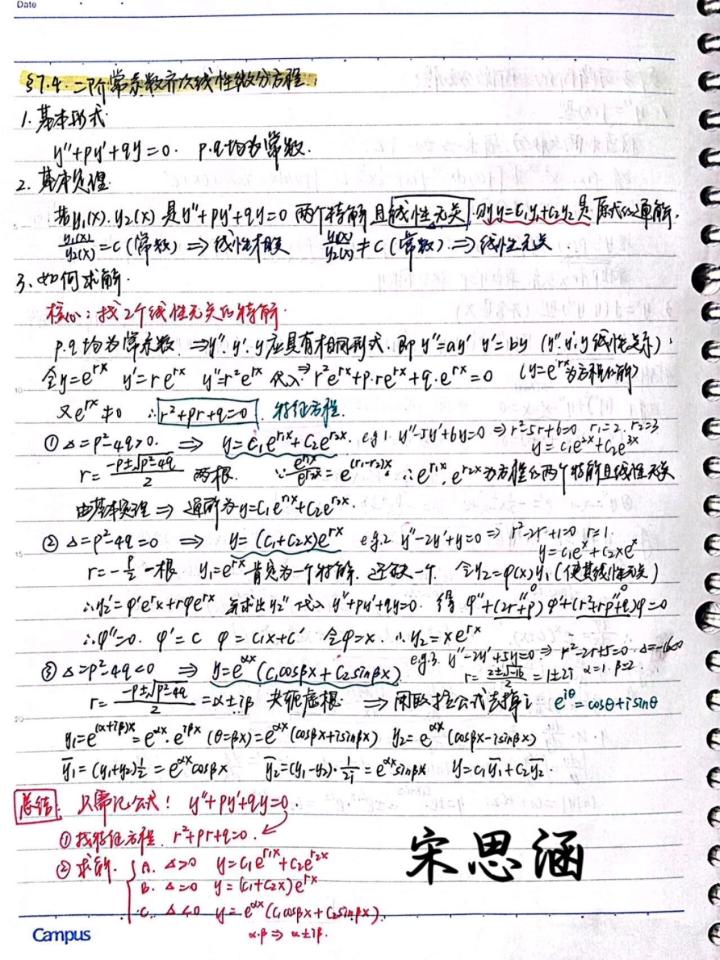 Date
§7.4. 二阶常系数齐次线性微分方程.
1. 基本形式
y''+py'+qy=0. p.q均为常数.
2. 基本定理.
若y₁(x).y₂(x) 是y''+py'+qy=0 两个特解且线性无关,则y=C₁y₁+C₂y₂是原式的通解.
y₁(x)/y₂(x)=C(常数) ⇒线性相关 y₁(x)/y₂(x)≠C(常数) ⇒线性无关
3. 如何求解.
核心:找2个线性无关的特解.
p.q均为常系数. ⇒y''.y'.y应具有相同形式.即y''=ay' y'=by (y''.y'.y线性关系).
令y=e^{rx} y'=re^{rx} y''=r²e^{rx} 代入⇒r²e^{rx}+p·re^{rx}+q·e^{rx}=0 (y=e^{rx}为方程的解)
又e^{rx}≠0 ∴r²+pr+q=0. 特征方程.
① Δ=p²-4q>0. ⇒ y=C₁e^{r₁x}+C₂e^{r₂x}. eg1. y''-5y'+6y=0 ⇒r²-5r+6=0 r₁=2. r₂=3
y=C₁e^{2x}+C₂e^{3x}
r=(-p±√(p²-4q))/2 两根. ∵e^{r₁x}/e^{r₂x}=e^{(r₁-r₂)x} ∴e^{r₁x}.e^{r₂x}为方程的两个特解且线性无关
由基本定理⇒ 通解为y=C₁e^{r₁x}+C₂e^{r₂x}.
② Δ=p²-4q=0 ⇒ y=(C₁+C₂x)e^{rx} eg.2 y''-2y'+y=0 ⇒ r²-2r+1=0 r=1.
y=C₁e^x+C₂xe^x
r=-p/2 一根 y₁=e^{rx} 肯定为一个特解. 还缺一个. 令y₂=φ(x)y₁(使其线性无关)
∴y₂'=φ'e^{rx}+rφe^{rx} 并求出y₂''代入 y''+py'+qy=0. 得 φ''+(2r+p)φ'+(r²+rp+q)φ=0
∴φ''=0. φ'=C φ=C₁x+C' 令φ=x. ∴y₂=xe^{rx}
③ Δ=p²-4q<0 ⇒ y=e^{αx}(C₁cosβx+C₂sinβx) eg.3. y''-2y'+5y=0 ⇒ r²-2r+5=0. Δ=-16<0
r=(2±√-16)/2=1±2i α=1. β=2.
r=(-p±√(p²-4q))/2=α±iβ 共轭虚根. ⇒ 用欧拉公式去掉i e^{iθ}=cosθ+isinθ
y₁=e^{(α+iβ)x}=e^{αx}·e^{iβx} (θ=βx)=e^{αx}(cosβx+isinβx) y₂=e^{αx}(cosβx-isinβx)
ȳ₁=(y₁+y₂)½=e^{αx}cosβx ȳ₂=(y₁-y₂)·1/2i=e^{αx}sinβx y=C₁ȳ₁+C₂ȳ₂.
总结: 只需记公式! y''+py'+qy=0.
①找特征方程. r²+pr+q=0.
②求解. A. Δ>0 y=C₁e^{r₁x}+C₂e^{r₂x}
B. Δ=0 y=(C₁+C₂x)e^{rx}
C. Δ<0 y=e^{αx}(C₁cosβx+C₂sinβx).
α.β ⇒ α±iβ.
宋思涵
Campus